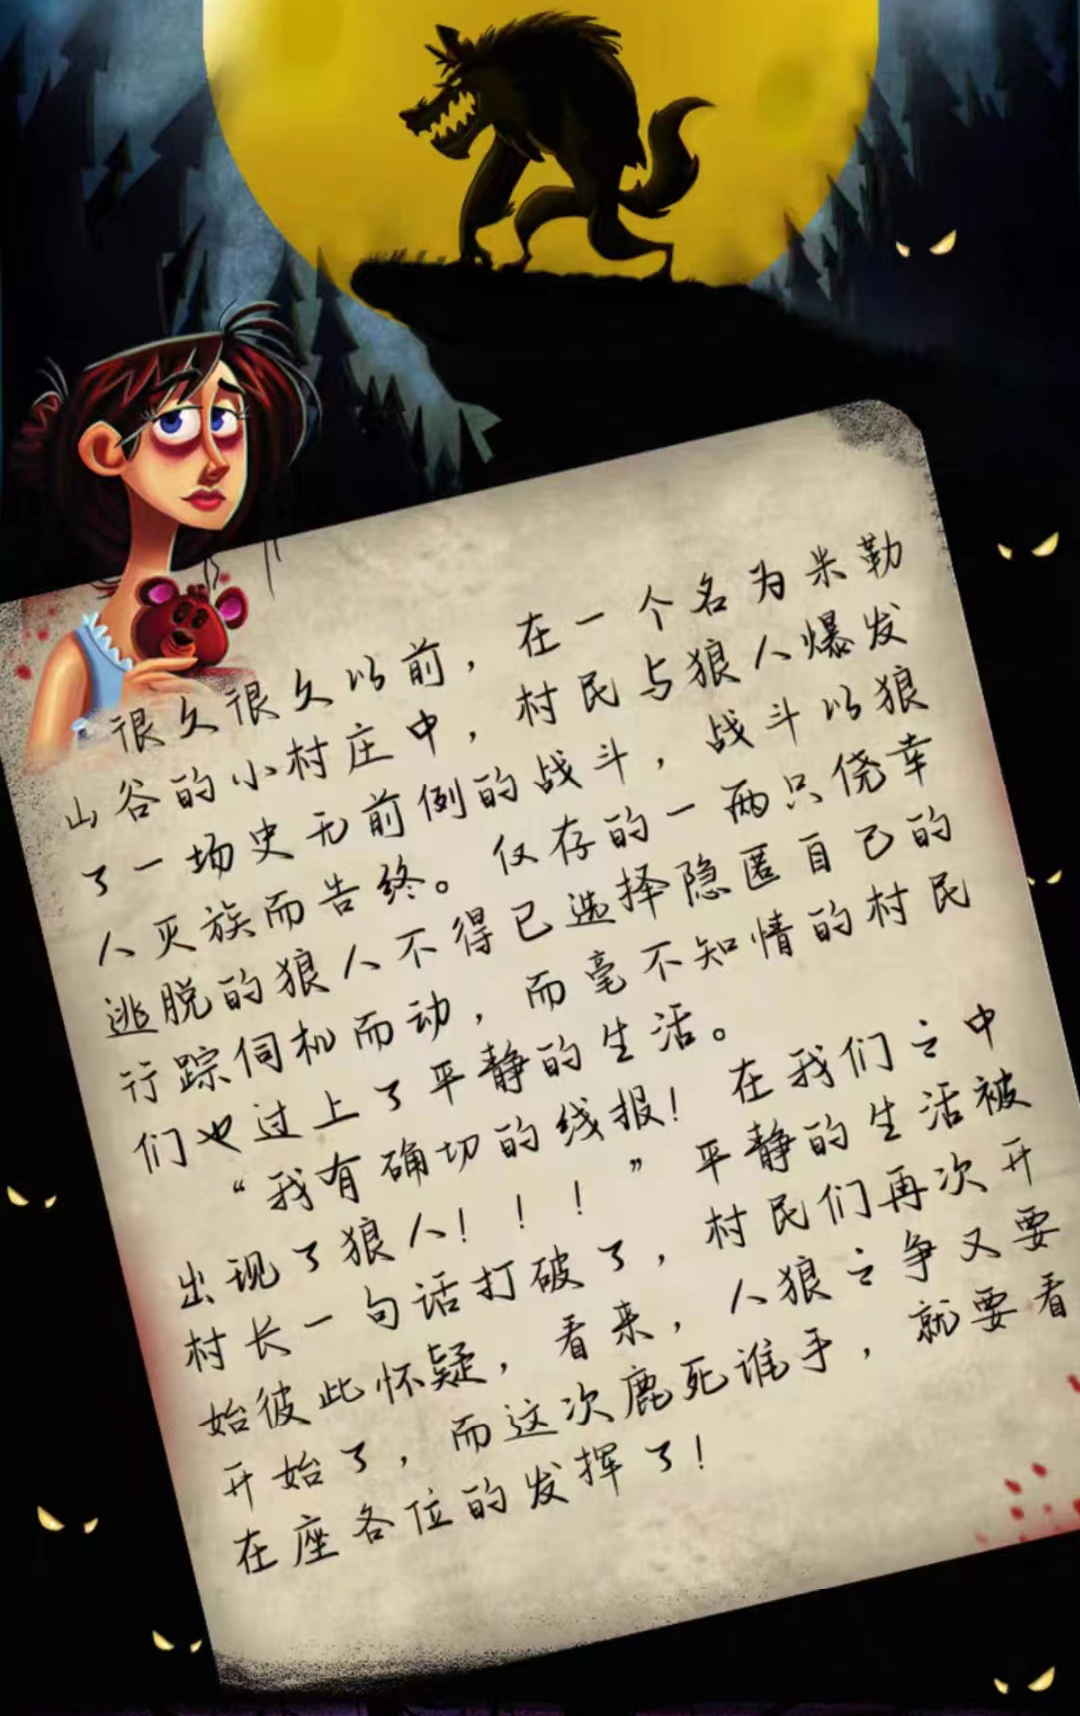 很久很久以前，在一个名为米勒
山谷的小村庄中，村民与狼人爆发
了一场史无前例的战斗，战斗以狼
人灭族而告终。仅存的一两只侥幸
逃脱的狼人不得已选择隐匿自己的
行踪伺机而动，而毫不知情的村民
们也过上了平静的生活。
“我有确切的线报！在我们之中
出现了狼人！！！”平静的生活被
村长一句话打破了，村民们再次开
始彼此怀疑，看来，人狼之争又要
开始了，而这次鹿死谁手，就要看
在座各位的发挥了！